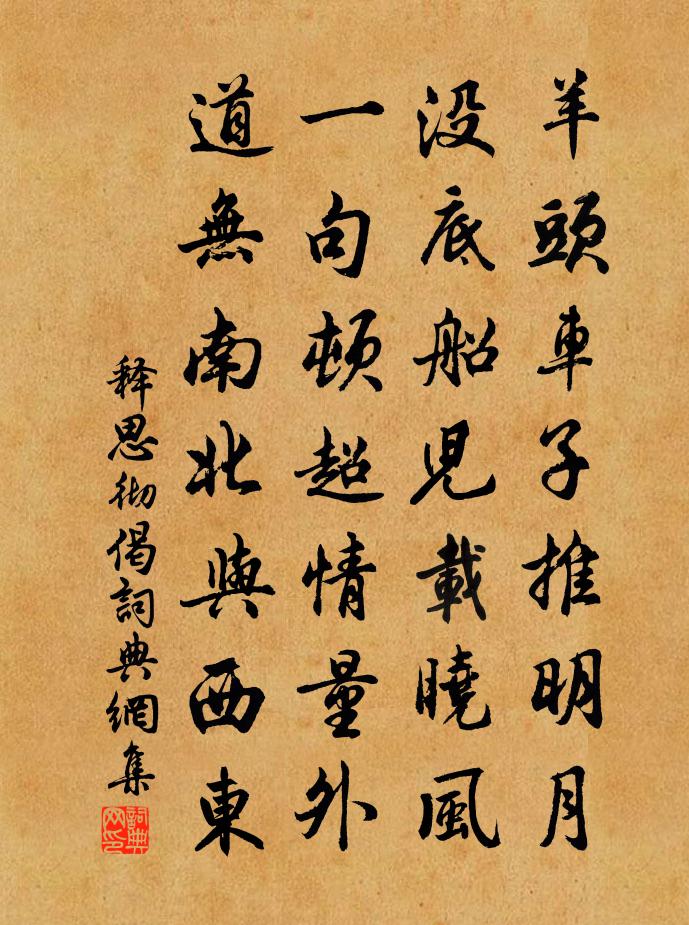 羊頭車子推明月
没底船児載曉風
一句頓超情量外
道無南北與西東
释思彻偈詞典網集
詞典网印